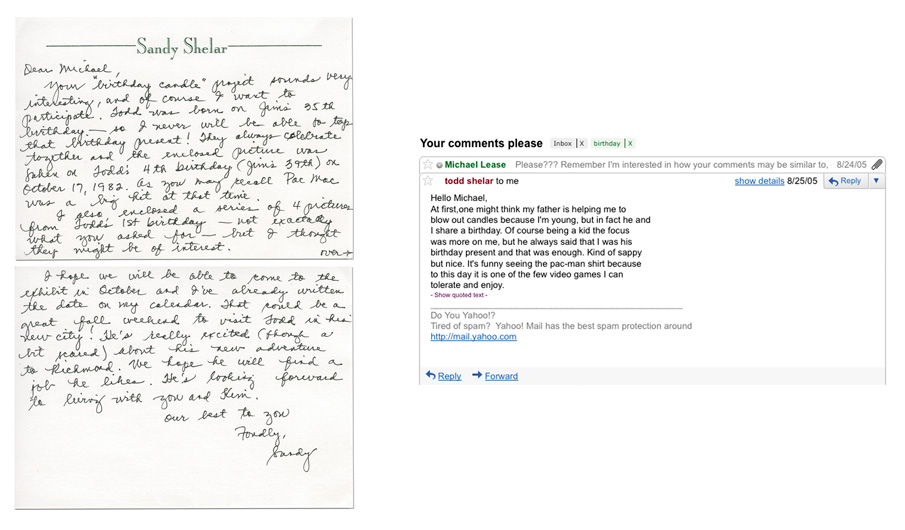 Sandy Shelar
Dear Michael,
Your "birthday candle" project sounds very
interesting, and of course I want to
participate. Todd was born on Jim's 35th
birthday — so I never will be able to top
that birthday present! They always celebrate
together and the enclosed picture was
taken on Todd's 4th birthday (Jim's 39th) on
October 17, 1982. As you may recall Pac Mac
was a big hit at that time.
I also enclosed a series of 4 pictures
from Todd's 1st birthday — not exactly
what you asked for — but I thought
they might be of interest.
over→
I hope we will be able to come to the
exhibit in October and I've already written
the date on my calendar. That could be a
great fall weekend to visit Todd in his
new city! He's really excited (though a
bit scared) about his new adventure
to Richmond. We hope he will find a
job he likes. He's looking forward
to living with you and Kim.
Our best to you
Fondly,
Sandy
Your comments please Inbox | X birthday | X
Michael Lease Please??? Remember I'm interested in how your comments may be similar to, 8/24/05
todd shelar to me show details 8/25/05 Reply
Hello Michael,
At first,one might think my father is helping me to
blow out candles because I'm young, but in fact he and
I share a birthday. Of course being a kid the focus
was more on me, but he always said that I was his
birthday present and that was enough. Kind of sappy
but nice. It's funny seeing the pac-man shirt because
to this day it is one of the few video games I can
tolerate and enjoy.
- Show quoted text -
Do You Yahoo!?
Tired of spam? Yahoo! Mail has the best spam protection around
http://mail.yahoo.com
Reply Forward